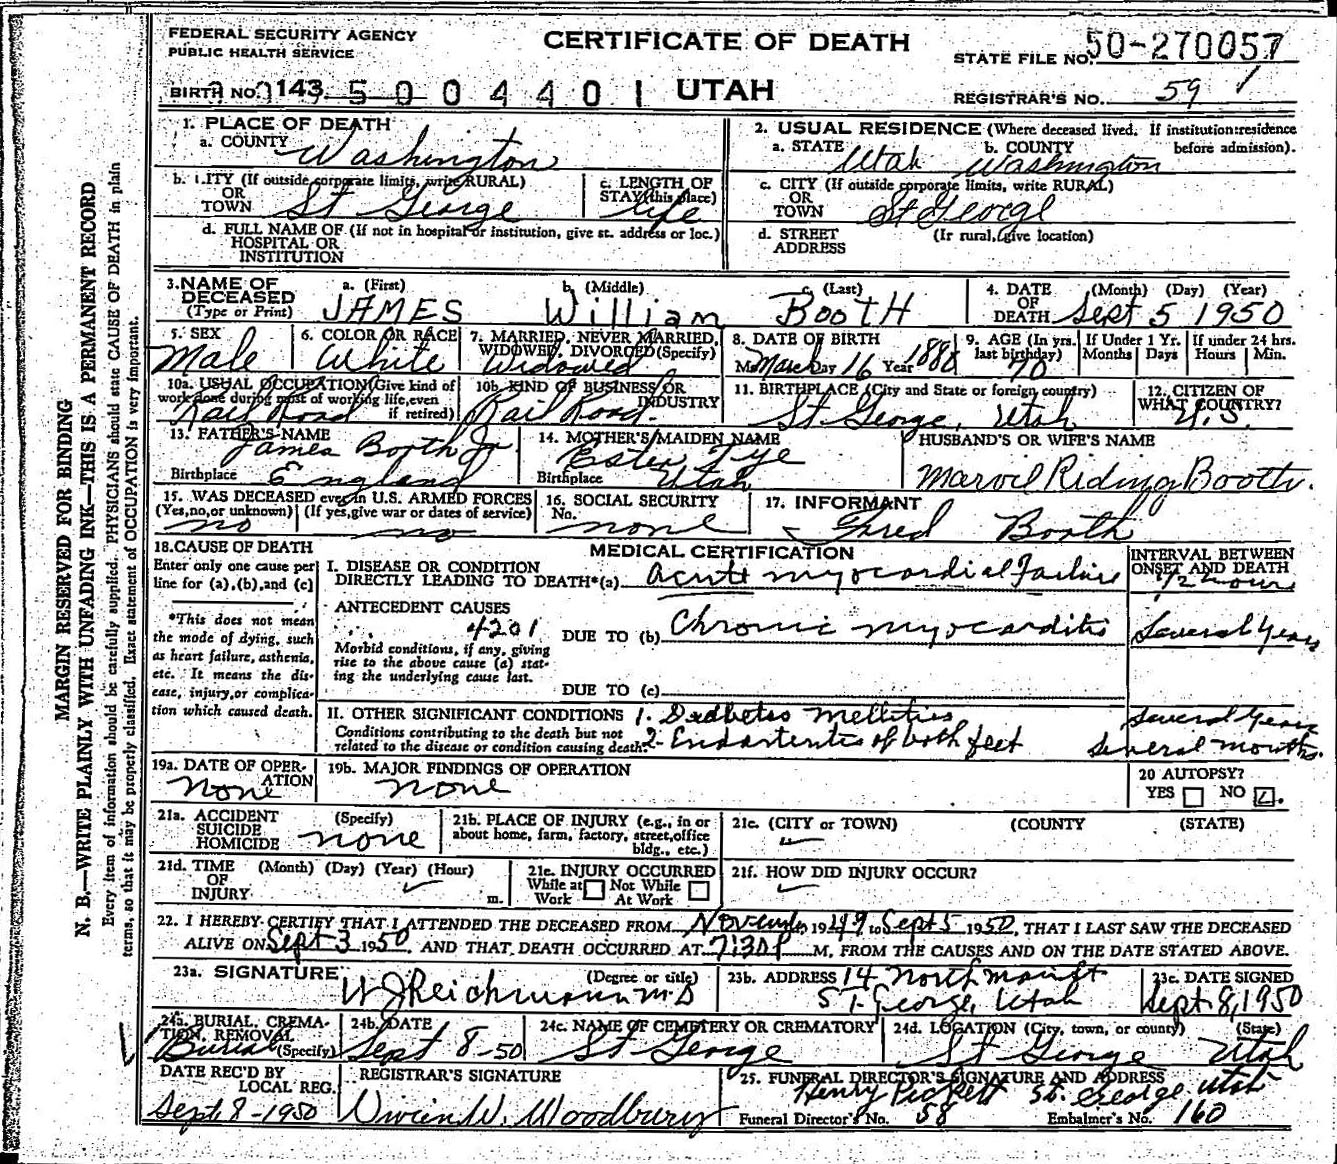 FEDERAL SECURITY AGENCY
PUBLIC HEALTH SERVICE
CERTIFICATE OF DEATH
STATE FILE NO. 50-270057
BIRTH NO. 143 5 0 0 4 4 0 1 UTAH
REGISTRAR'S NO. 59
1. PLACE OF DEATH
a. COUNTY Washington
2. USUAL RESIDENCE (Where deceased lived. If institution: residence before admission).
a. STATE Utah b. COUNTY Washington
b. CITY (If outside corporate limits, write RURAL) OR TOWN St George
c. LENGTH OF STAY (this place) life
c. CITY (If outside corporate limits, write RURAL) OR TOWN St George
d. FULL NAME OF (If not in hospital or institution, give st. address or loc.) HOSPITAL OR INSTITUTION
d. STREET ADDRESS (If rural, give location)
3. NAME OF DECEASED (Type or Print)
a. (First) JAMES b. (Middle) William c. (Last) BOOTH
4. DATE OF DEATH (Month) (Day) (Year) Sept 5 1950
5. SEX Male
6. COLOR OR RACE White
7. MARRIED, NEVER MARRIED, WIDOWED, DIVORCED (Specify) Widowed
8. DATE OF BIRTH March Day 16 Year 1880
9. AGE (In yrs. last birthday) 70
If Under 1 Yr. Months Days
If under 24 hrs. Hours Min.
10a. USUAL OCCUPATION (Give kind of work done during most of working life, even if retired) Rail Road
10b. KIND OF BUSINESS OR INDUSTRY Rail Road.
11. BIRTHPLACE (City and State or foreign country) St George, Utah
12. CITIZEN OF WHAT COUNTRY? U.S.
13. FATHER'S NAME James Booth Jr
Birthplace England
14. MOTHER'S MAIDEN NAME Ester Tye
Birthplace Utah
HUSBAND'S OR WIFE'S NAME
Marvil Riding Booth.
15. WAS DECEASED ever in U.S. ARMED FORCES
(Yes, no, or unknown) (If yes, give war or dates of service)
no no
16. SOCIAL SECURITY No. none
17. INFORMANT
Booth
18. CAUSE OF DEATH
Enter only one cause per line for (a), (b), and (c)
*This does not mean the mode of dying, such as heart failure, asthenia, etc. It means the disease, injury, or complication which caused death.
MEDICAL CERTIFICATION
INTERVAL BETWEEN ONSET AND DEATH
I. DISEASE OR CONDITION DIRECTLY LEADING TO DEATH* (a) acute myocardial Failure 1/2 hour
ANTECEDENT CAUSES
4201 DUE TO (b) Chronic myocarditis Several Years
Morbid conditions, if any, giving rise to the above cause (a) stating the underlying cause last.
DUE TO (c)
II. OTHER SIGNIFICANT CONDITIONS 1. Diabetes Mellitus Several Years
Conditions contributing to the death but not related to the disease or condition causing death. 2- Endarteritis of both feet Several months.
19a. DATE OF OPERATION None
19b. MAJOR FINDINGS OF OPERATION none
20 AUTOPSY? YES NO
21a. ACCIDENT SUICIDE HOMICIDE (Specify) none
21b. PLACE OF INJURY (e.g., in or about home, farm, factory, street, office bldg., etc.)
21c. (CITY or TOWN) (COUNTY) (STATE)
21d. TIME OF INJURY (Month) (Day) (Year) (Hour) m.
21e. INJURY OCCURRED While at Work Not While At Work
21f. HOW DID INJURY OCCUR?
22. I HEREBY CERTIFY THAT I ATTENDED THE DECEASED FROM November 1949 to Sept 5 1950, THAT I LAST SAW THE DECEASED
ALIVE ON Sept 3 1950 AND THAT DEATH OCCURRED AT 7:30 P M, FROM THE CAUSES AND ON THE DATE STATED ABOVE.
23a. SIGNATURE (Degree or title) W J Reichmann MD
23b. ADDRESS 14 North St. George, Utah
23c. DATE SIGNED Sept. 8, 1950
24a. BURIAL, CREMATION, REMOVAL (Specify) Burial
24b. DATE Sept 8-50
24c. NAME OF CEMETERY OR CREMATORY St George
24d. LOCATION (City, town, or county) (State) St George Utah
DATE REC'D BY LOCAL REG. Sept 8-1950
REGISTRAR'S SIGNATURE Vivien W. Woodbury
25. FUNERAL DIRECTOR'S SIGNATURE AND ADDRESS
Henry Pickett St. George Utah
Funeral Director's No. 58 Embalmer's No. 160
MARGIN RESERVED FOR BINDING
N. B.—WRITE PLAINLY WITH UNFADING INK—THIS IS A PERMANENT RECORD
Every item of information should be carefully supplied. PHYSICIANS should state CAUSE OF DEATH in plain
terms, so that it may be properly classified. Exact statement of OCCUPATION is very important.